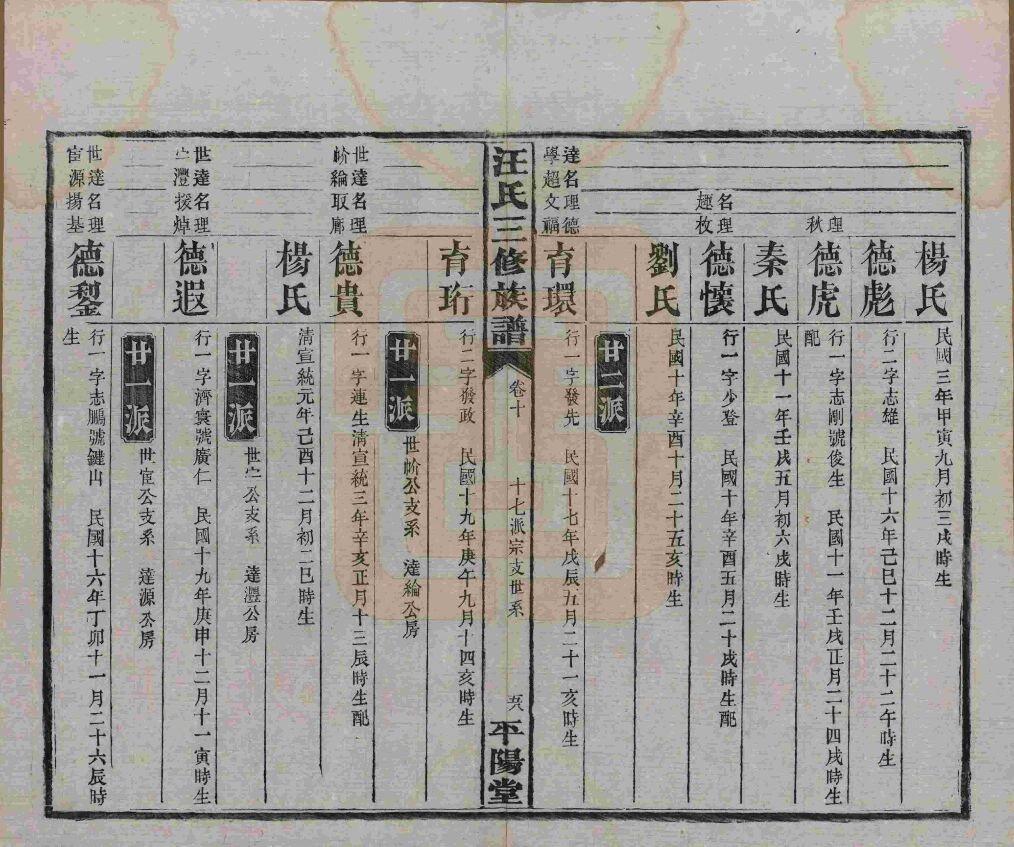 楊氏
民國三年甲寅九月初三戌時生
德彪
行二字志雄 民國十六年己巳十二月二十二午時生
理
秋
德虎
行一字志剛號俊生 民國十一年壬戌正月二十四戌時生
配
秦氏
民國十一年壬戌五月初六戌時生
名理
趣枚
德懷
行一字少登 民國十年辛酉五月二十戌時生配
劉氏
民國十年辛酉十月二十五亥時生
廿二派
達名理德
學超文福
育環
行一字發先 民國十七年戊辰五月二十一亥時生
汪氏三修族譜
卷十
十七派宗支世系
平陽堂
育珩
行二字發政 民國十九年庚午九月十四亥時生
廿一派
世蚧公支系 達綸公房
世達名理
蚧綸取廊
德貴
行一字連生清宣統三年辛亥正月十三辰時生配
楊氏
清宣統元年己酉十二月初二巳時生
廿一派
世宁公支系 達灃公房
世達名理
宁灃援焯
德遐
行一字濟寰號廣仁 民國十九年庚申十二月十一寅時生
廿一派
世宦公支系 達源公房
世達名理
宦源揚基
德鋆
行一字志鵬號鍵山 民國十六年丁卯十一月二十六辰時
生